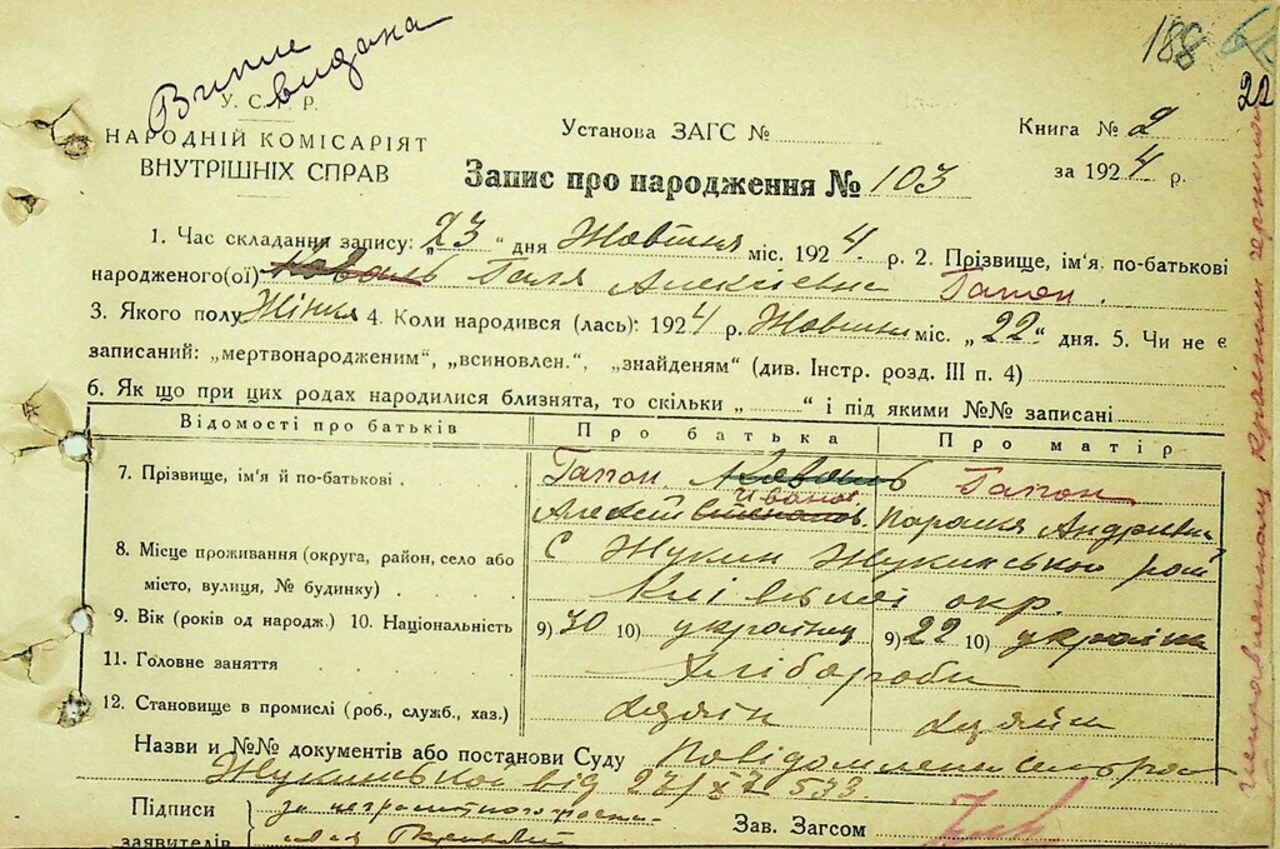 188
22
Випис
видана
У. С. Р. Р.
НАРОДНІЙ КОМІСАРІЯТ
ВНУТРІШНІХ СПРАВ
Установа ЗАГС №
Книга № 2
за 1924 р.
Запис про народження № 103
1. Час складання запису: „23“ дня Жовтня міс. 1924 р. 2. Прізвище, ім'я, по-батькові
народженого(ої) Коваль Галя Алексіевна Гапон.
3. Якого полу Жіноч 4. Коли народився (лась): 1924 р. Жовтня міс. „22“ дня. 5. Чи не є
записаний: „мертвонародженим“, „всиновлен.“, „знайденям“ (див. Інстр. розд. III п. 4)
6. Як що при цих родах народилися близнята, то скільки „ “ і під якими №№ записані
Відомості про батьків Про батька Про матір
7. Прізвище, ім'я й по-батькові Гапон Коваль Гапон
Иванов.
Алексій Степанов. Параска Андріевна
8. Місце проживання (округа, район, село або С Жукин Жукинського рай
місто, вулиця, № будинку) Київської окр.
9. Вік (років од народж.) 10. Національність 9) 30 10) українец 9) 22 10) українка
11. Головне заняття Хлібороби
12. Становище в промислі (роб., служб., хаз.)
Назви и №№ документів або постанови Суду Повідомлення сельради
Жукинської від 27/XI 533.
Підписи за неграмотного
заявителів
Зав. Загсом
неправленному красными чернилами